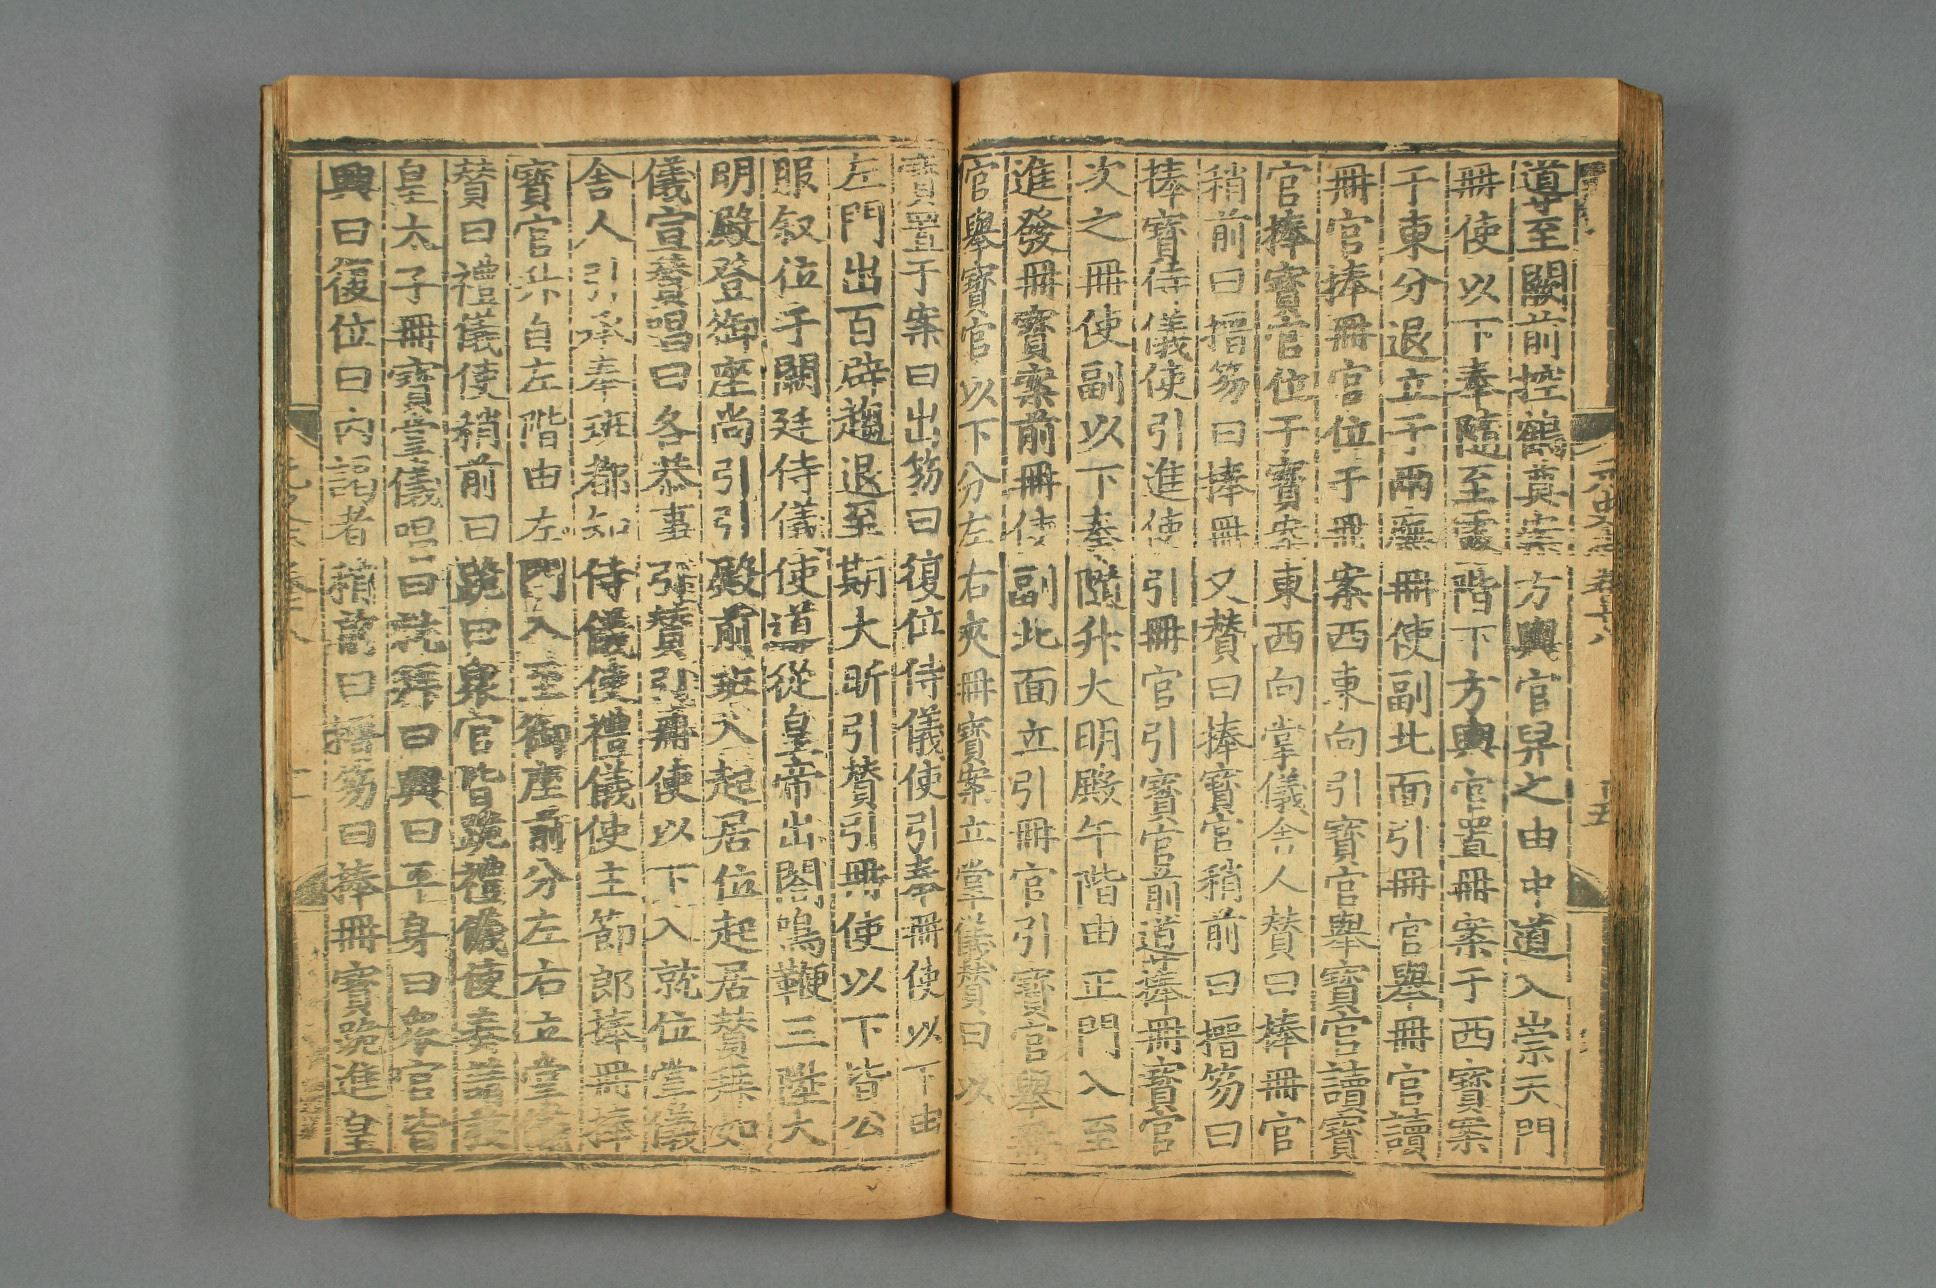 道至闕前控鶴奠案方輿官舁之由中道入崇天門
冊使以下奉隨至露階下方輿官置冊案于西寶案
于東分退立于兩廡冊使副北面引冊官舉冊官讀
冊官捧冊官位于冊案西東向引寶官舉寶官讀寶
官捧寶官位于寶案東西向掌儀舍人贊曰捧冊官
稍前曰搢笏曰捧冊又贊曰捧寶官稍前曰搢笏曰
捧寶侍儀使引進使引冊官引寶官前道捧冊寶官
次之冊使副以下奉隨升大明殿午階由正門入至
進發冊寶案前冊使副北面立引冊官引寶官舉冊
官舉寶官以下分左右夾冊寶案立掌儀贊曰以
寶置于案曰出笏曰復位侍儀使引奉冊使以下由
左門出百辟趨退至期大昕引贊引冊使以下皆公
服叙位于闕廷侍儀使道從皇帝出閤鳴鞭三陞大
明殿登御座尚引引殿前班入起居位起居贊拜如
儀宣贊唱曰各恭事引贊引冊使以下入就位掌儀
舍人引承奉班都知侍儀使禮儀使主節郎捧冊捧
寶官升自左階由左門入至御座前分左右立掌儀
贊曰禮儀使稍前曰跪曰衆官皆跪禮儀使奏請發
皇太子冊寶掌儀唱曰就拜曰興曰平身曰衆官皆
興曰復位曰內謁者稍前曰搢笏曰捧冊寶跪進皇